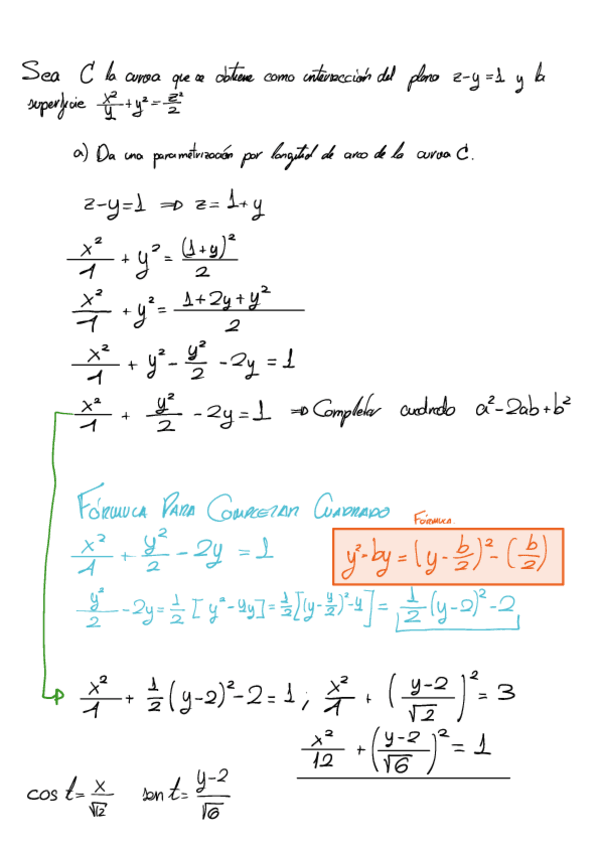 Sea C la curva que se obtiene como intersección del plano z-y=1 y la
superficie x²/y + y² = z²/2
a) Da una parametrización por longitud de arco de la curva C.
z-y=1 ⇒ z=1+y
x²/1 + y² = (1+y)²/2
x²/1 + y² = 1+2y+y²/2
x²/1 + y² - y²/2 - 2y = 1
x²/1 + y²/2 - 2y = 1 ⇒ Completar cuadrado a²-2ab+b²
FÓRMULA PARA COMPLETAR CUADRADO
FÓRMULA
x²/1 + y²/2 - 2y = 1
y²-by = (y - b/2)² - (b/2)
y²/2 - 2y = 1/2 [y²-4y] = 1/2 [(y-y/2)²-4] = 1/2 (y-2)² - 2
x²/1 + 1/2 (y-2)² - 2 = 1 ; x²/1 + (y-2/√2)² = 3
x²/12 + (y-2/√6)² = 1
cos t = x/√12 sen t = y-2/√6